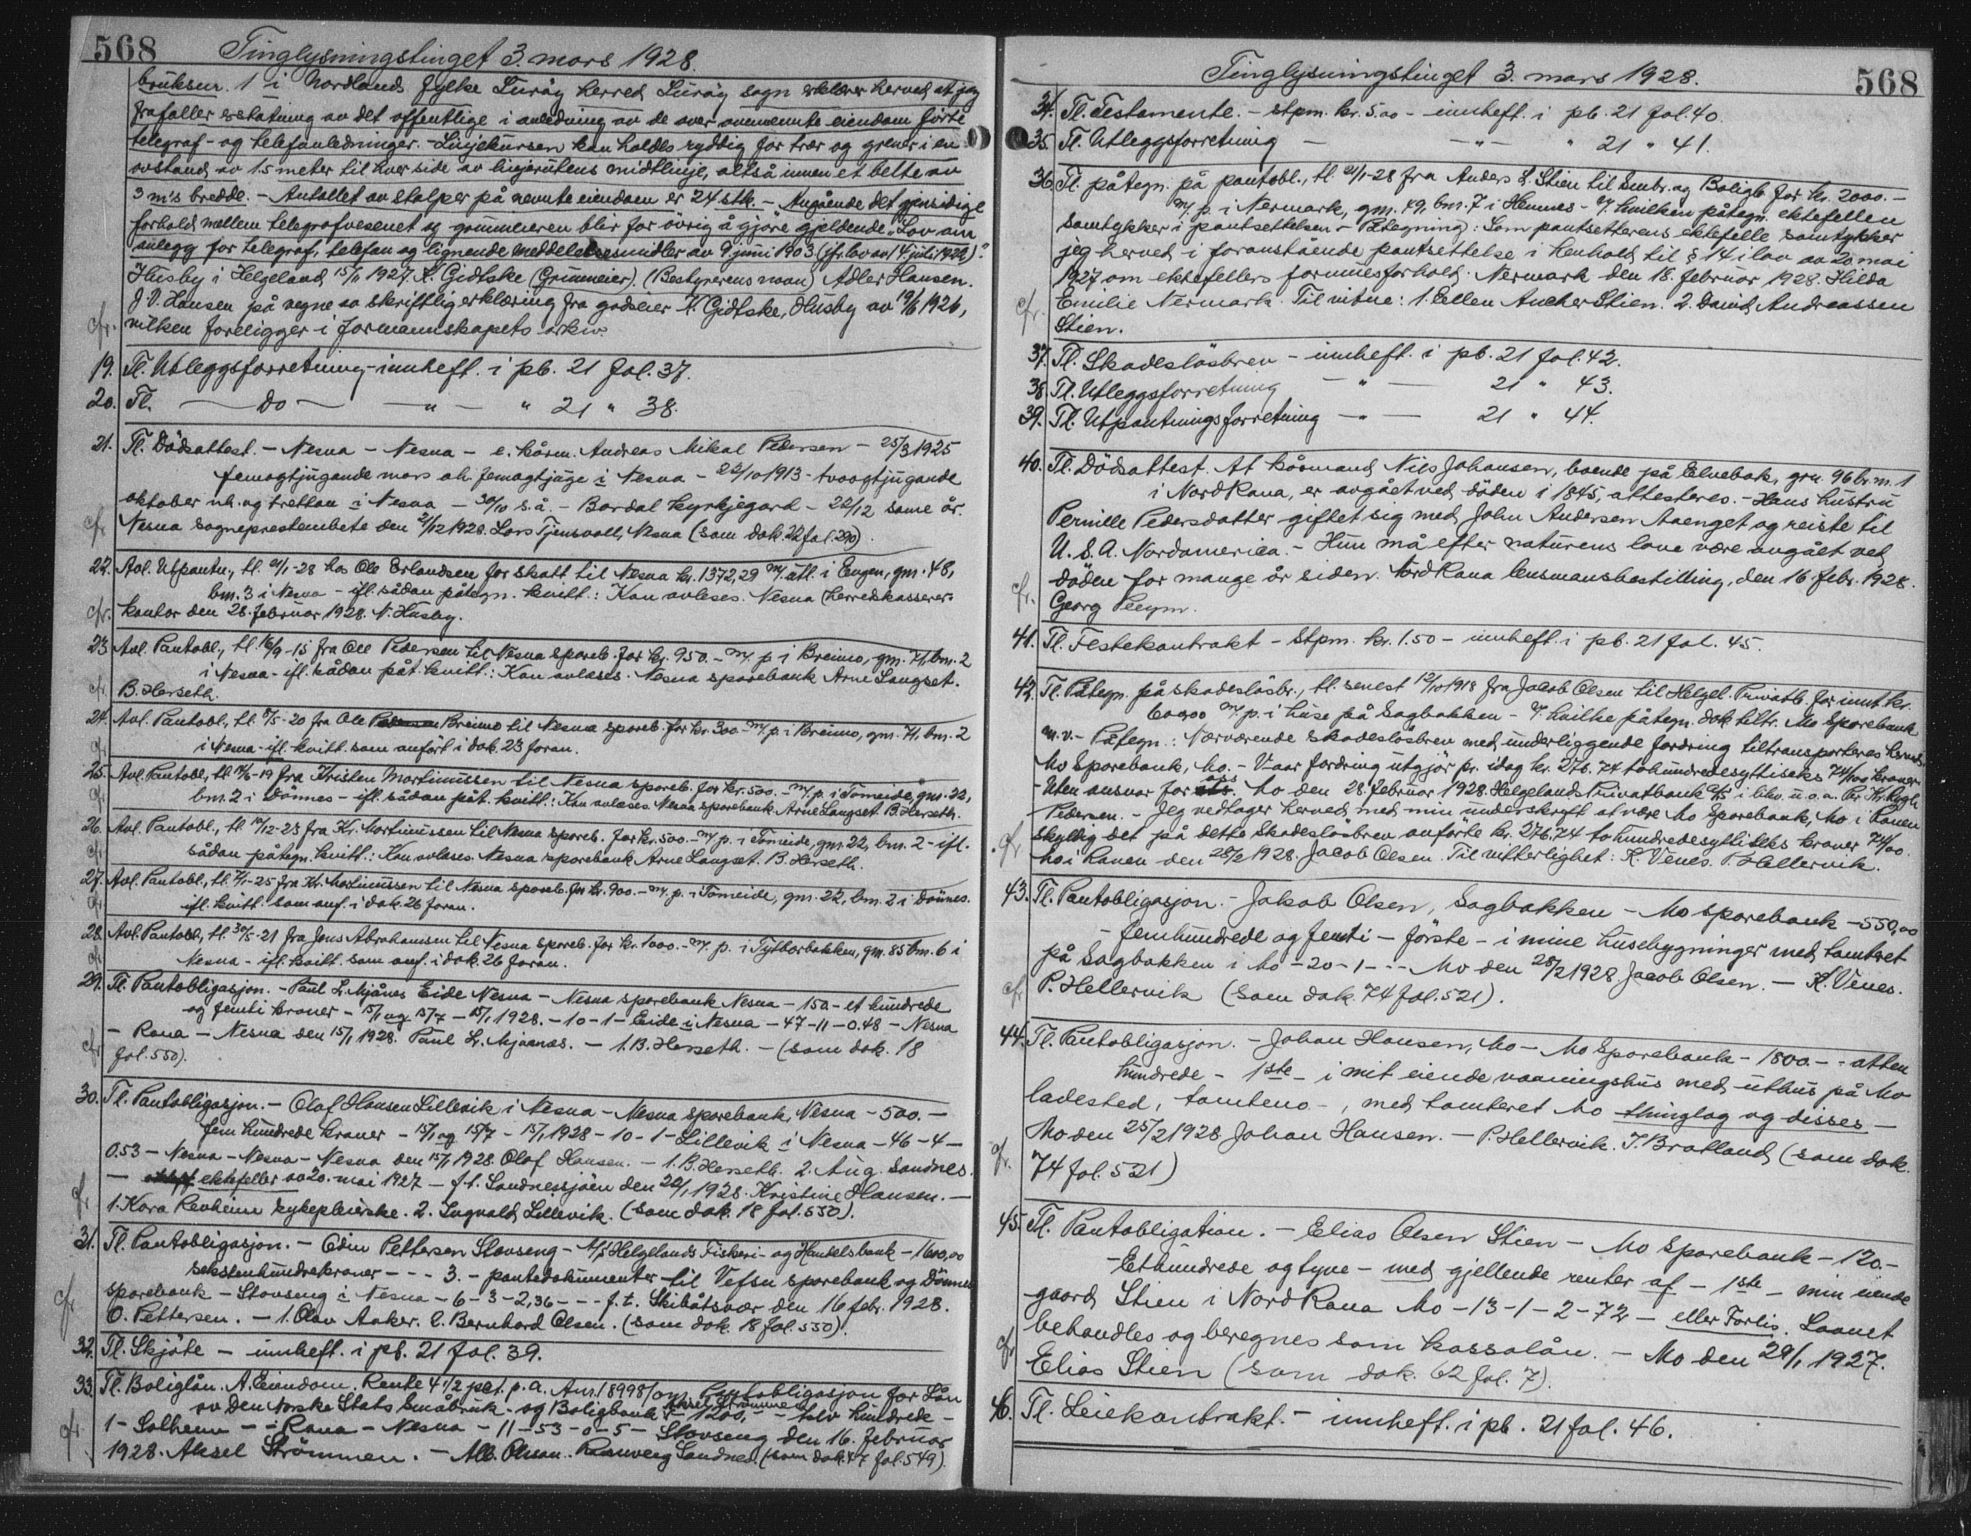 568 Tinglysningstinget 3. mars 1928.
bruksnr. 1 i Nordlands fylke Lurøy herred Lurøy sogn erklærer herved at jeg
frafaller erstatning av det offentlige i anledning av de over ovennevnte eiendom førte
telegraf- og telefonledninger. - Linjekursen kan holdes ryddig for trær og grener i en
avstand av 1.5 meter til hver side av linjerutens midtlinje, altså innen et belte av
3 m's bredde. - Antallet av stolper på nevnte eiendom er 24 stk. - Angående det gjensidige
forhold mellem telegrafvesenet og grunneieren blir for øvrig å gjøre gjeldende „Lov om
anlegg for telegraf, telefon og lignende meddelelsesmidler av 9 juni 1903 (jfr. lov av 14 juli 1922)".
Husby i Helgeland 15/11 1927. A. Gidske (Grunneier). (Bestyrerens navn) Adler Hansen.
J. V. Hansen på vegne av skriftlig erklæring fra godseier A. Gidske, Husby av 19/6 1926,
cfr. vilken foreligger i formannskapets arkiv.
19. Tl. Utleggsforretning - innheft. i pb. 21 fol. 37.
20. Tl. — do — — " — " 21 " 38.
21. Tl. Dödsattest. - Nesna - Nesna - e. kårm. Andreas Mikal Pedersen - 25/3 1925
femogtjugande mars a.h. femogtjuge i Nesna - 22/10 1913 - tvoogtjugande
oktober nh. og tretton i Nesna - 30/10 s.å. - Bardal kyrkjegard - 22/12 same år.
cfr Nesna sogneprestembete den 21/12 1928. Lars Tjensvoll, Nesna (som dok. 22 fol. 290).
22. Avl. Utpantn., tl. 21/1-28 hos Ole Erlandsen for skatt til Nesna kr. 1372,29 m/ utl. i Engen, gnr. 48,
bnr. 3 i Nesna - ifl. sådan påtegn. kvitt.: Kan avleses. Nesna herredskasserer-
cfr. kontor den 28. februar 1928. N. Husby.
23. Avl. Pantobl., tl. 16/9-15 fra Ole Pedersen til Nesna spareb. for kr. 950. - m/ p. i Breimo, gnr. 71, bnr. 2
i Nesna - ifl. sådan påt. kvitt.: Kan avleses. Nesna sparebank Arne Langset.
cfr. B. Herseth.
24. Avl. Pantobl., tl. 8/5-20 fra Ole Breimo til Nesna spareb. for kr. 300 - m/ p. i Breimo, gnr. 71, bnr. 2
cfr i Nesna - ifl. kvitt. som anført i dok. 23 foran.
25. Avl. Pantobl., tl. 14/6-19 fra Kristen Martinussen til Nesna spareb. for kr. 500. - m/ p. i Tömeide, gnr. 22,
cfr bnr. 2 i Dönnes - ifl. sådan påt. kvitt.: Kan avleses Nesna sparebank Arne Langset B. Herseth.
26. Avl. Pantobl., tl. 10/12-23 fra Kr. Martinussen til Nesna spareb. for kr. 500. - m/ p. i Tömeide, gnr. 22, bnr. 2 - ifl.
cfr sådan påtegn. kvitt.: Kan avleses. Nesna sparebank Arne Langset. B. Herseth.
27. Avl. Pantobl., tl. 2/1-25 fra Kr. Martinussen til Nesna spareb. for kr. 900. - m/ p. i Tömeide, gnr. 22, bnr. 2 i Dönnes.
cfr ifl. kvitt. som anf. i dok. 26 foran.
28. Avl. Pantobl., tl. 30/5-21 fra Jens Abrahamsen til Nesna spareb. for kr. 1000. - m/ p. i Tytterbakken, gnr. 85 bnr. 6 i
cfr Nesna - ifl. kvitt. som anf. i dok. 26 foran.
29. Tl. Pantobligasjon. - Paul L. Mjånes Eide Nesna - Nesna sparebank Nesna - 150 - et hundrede
og femti kroner - 15/1 og 15/7 - 15/1 1928. - 10 - 1 - Eide i Nesna - 47 - 11 - 0.48 - Nesna
- Rana - Nesna den 15/1 1928. Paul L. Mjaanes. - 1. B. Herseth. - (som dok. 18
cfr fol. 550).
30. Tl. Pantobligasjon. - Olaf Hansen Lillevik i Nesna - Nesna sparebank, Nesna - 500. -
fem hundrede kroner - 15/1 og 15/7 - 15/1 1928 - 10 - 1 - Lillevik i Nesna - 46 - 4 -
0.53 - Nesna - Nesna - Nesna den 15/1 1928. Olaf Hansen. - 1. B. Herseth. 2. Aug. Sandnes.
- ektefeller av 20. mai 1927 - f.t. Sandnessjøen den 20/1 1928. Kristine Hansen. -
cfr 1. Kara Revheim sykepleierske. 2. Ingvald Lillevik. (som dok. 18 fol. 550).
31. Tl. Pantobligasjon. - Odin Pettersen Stavseng - A/S Helgelands Fiskeri- og Handelsbank - 1600,00
sekstenhundrekroner - - - 3. - pantedokumenter til Vefsn sparebank og Dönnes
cfr. sparebank - Stavseng i Nesna - 6 - 3 - 2,36 - - - f.t. Skibåtsvær den 16 febr. 1928.
O. Pettersen. - 1. Olav Anker. 2. Bernhard Olsen. (som dok. 18 fol. 550).
32. Tl. Skjöte - innheft. i pb. 21 fol. 39.
33. Tl. Boliglån. A. Eiendom. Rente 4 1/2 pct. p.a. Anr. 18998/ Pantobligasjon for Lån
av Den Norske Stats Småbruk- og Boligbank Aksel Strømmen - 1200, - - tolv hundrede -
cfr. 1 - Solheim - - Rana - Nesna - 11 - 53 - 0 - 5 - Stavseng den 16. februar
1928. Aksel Strömmen. - Alb. Olsen. Rannveig Sandnes. (som dok. 47 fol. 549)
Tinglysningstinget 3. mars 1928. 568
34. Tl. Testamente. - stpm. kr. 5.00 - innheft. i pb. 21 fol. 40.
35. Tl. Utleggsforretning - — " — " 21 " 41.
36. Tl. påtegn. på pantobl., tl. 21/1-28 fra Anders L. Stien til Småbr. og Boligb. for kr. 2000. -
m/ p. i Nermark, gnr. 49, bnr. 7 i Hemnes - v/ hvilken påtegn. ektefellen
samtykker i pantsettelsen - Påtegning: Som pantsetterens ektefelle samtykker
jeg herved i foranstående pantsettelse i henhold til § 14 i lov av 20 mai
1927 om ektefellers formuesforhold. Nermark den 18. februar 1928. Hilda
cfr. Emilie Nermark. Til vitne: 1. Ellen Ancher Stien. 2. David Andreassen
Stien.
37. Tl. Skadeslösbrev - innheft. i pb. 21 fol. 42.
38. Tl. Utleggsforretning — " — 21 " 43.
39. Tl. Utpantningsforretning — " — 21 " 44.
40. Tl. Dödsattest. At kårmand Nils Johansen, boende på Elvebak, gnr. 96 br.nr. 1
i Nord Rana, er avgået ved döden i 1845, attesteres. - Hans hustru
Pernille Pedersdatter giftet sig med John Andersen Aaenget og reiste til
U. S. A. Nordamerica. - Hun må efter naturens love være avgået ved
cfr. döden for mange år siden. Nord Rana lensmansbestilling, den 16 febr. 1928.
Georg Pleym.
41. Tl. Festekontrakt - Stpm. kr. 1.50 - innheft. i pb. 21 fol. 45.
42. Tl. Påtegn. på skadeslösbr., tl. senest 12/10 1918 fra Jacob Olsen til Helgel. Privatb. for inntil kr.
600,00 m/ p. i huse på Sagbakken - v/ hvilke påtegn. dok. tiltr. Mo Sparebank
m.v. - Påtegn.: Nærværende skadeslösbrev med underliggende fordring tiltransporteres herved
Mo Sparebank, Mo. - Vaar fordring utgjör pr. idag kr. 276.74 tohundredesyttiseks 74/100 kroner
- Uten ansvar for oss. Mo den 28. februar 1928. Helgelands Privatbank A/S i likv. u.o.a. Per Kr.
Pedersen. - Jeg vedtager herved med min underskrift at være Mo Sparebank, Mo i Ranen
cfr skyldig det på dette Skadeslösbrev anförte kr. 276.74 tohundredesyttiseks kroner 74/00.
Mo i Ranen den 28/2 1928. Jacob Olsen. Til vitterlighet: K. Venes. P. Hellervik.
43. Tl. Pantobligasjon. - Jakob Olsen, Sagbakken - Mo sparebank - 550,00
- femhundrede og femti - förste - i mine husebygninger med tomteret
på Sagbakken i Mo - 20 - 1 - - - Mo den 28/2 1928. Jacob Olsen. - K. Venes.
cfr P. Hellervik (som dok. 74 fol. 521).
44. Tl. Pantobligasjon. - Johan Hansen, Mo - Mo Sparebank - 1800. - - atten
hundrede - 1ste - i mit eiende vaaningshus med uthus på Mo
ladested, tomteno - , med tomteret Mo thinglag og disses -
cfr. Mo den 25/2 1928 Johan Hansen. - P. Hellervik. T. Bratland (som dok.
74 fol. 521)
45. Tl. Pantobligation. - Elias Olsen Stien - Mo Sparebank - 120. -
- Ethundrede og tyve - med gjellende renter af - 1ste - min eiende
gaard Stien i Nord Rana Mo - 13 - 1 - 2 - 72 - eller Forlis. Laanet
cfr behandles og beregnes som kassalån. - Mo den 29/1 1927.
Elias Stien (som dok. 62 fol. 7).
46. Tl. Leiekontrakt. - innheft. i pb. 21 fol. 46.